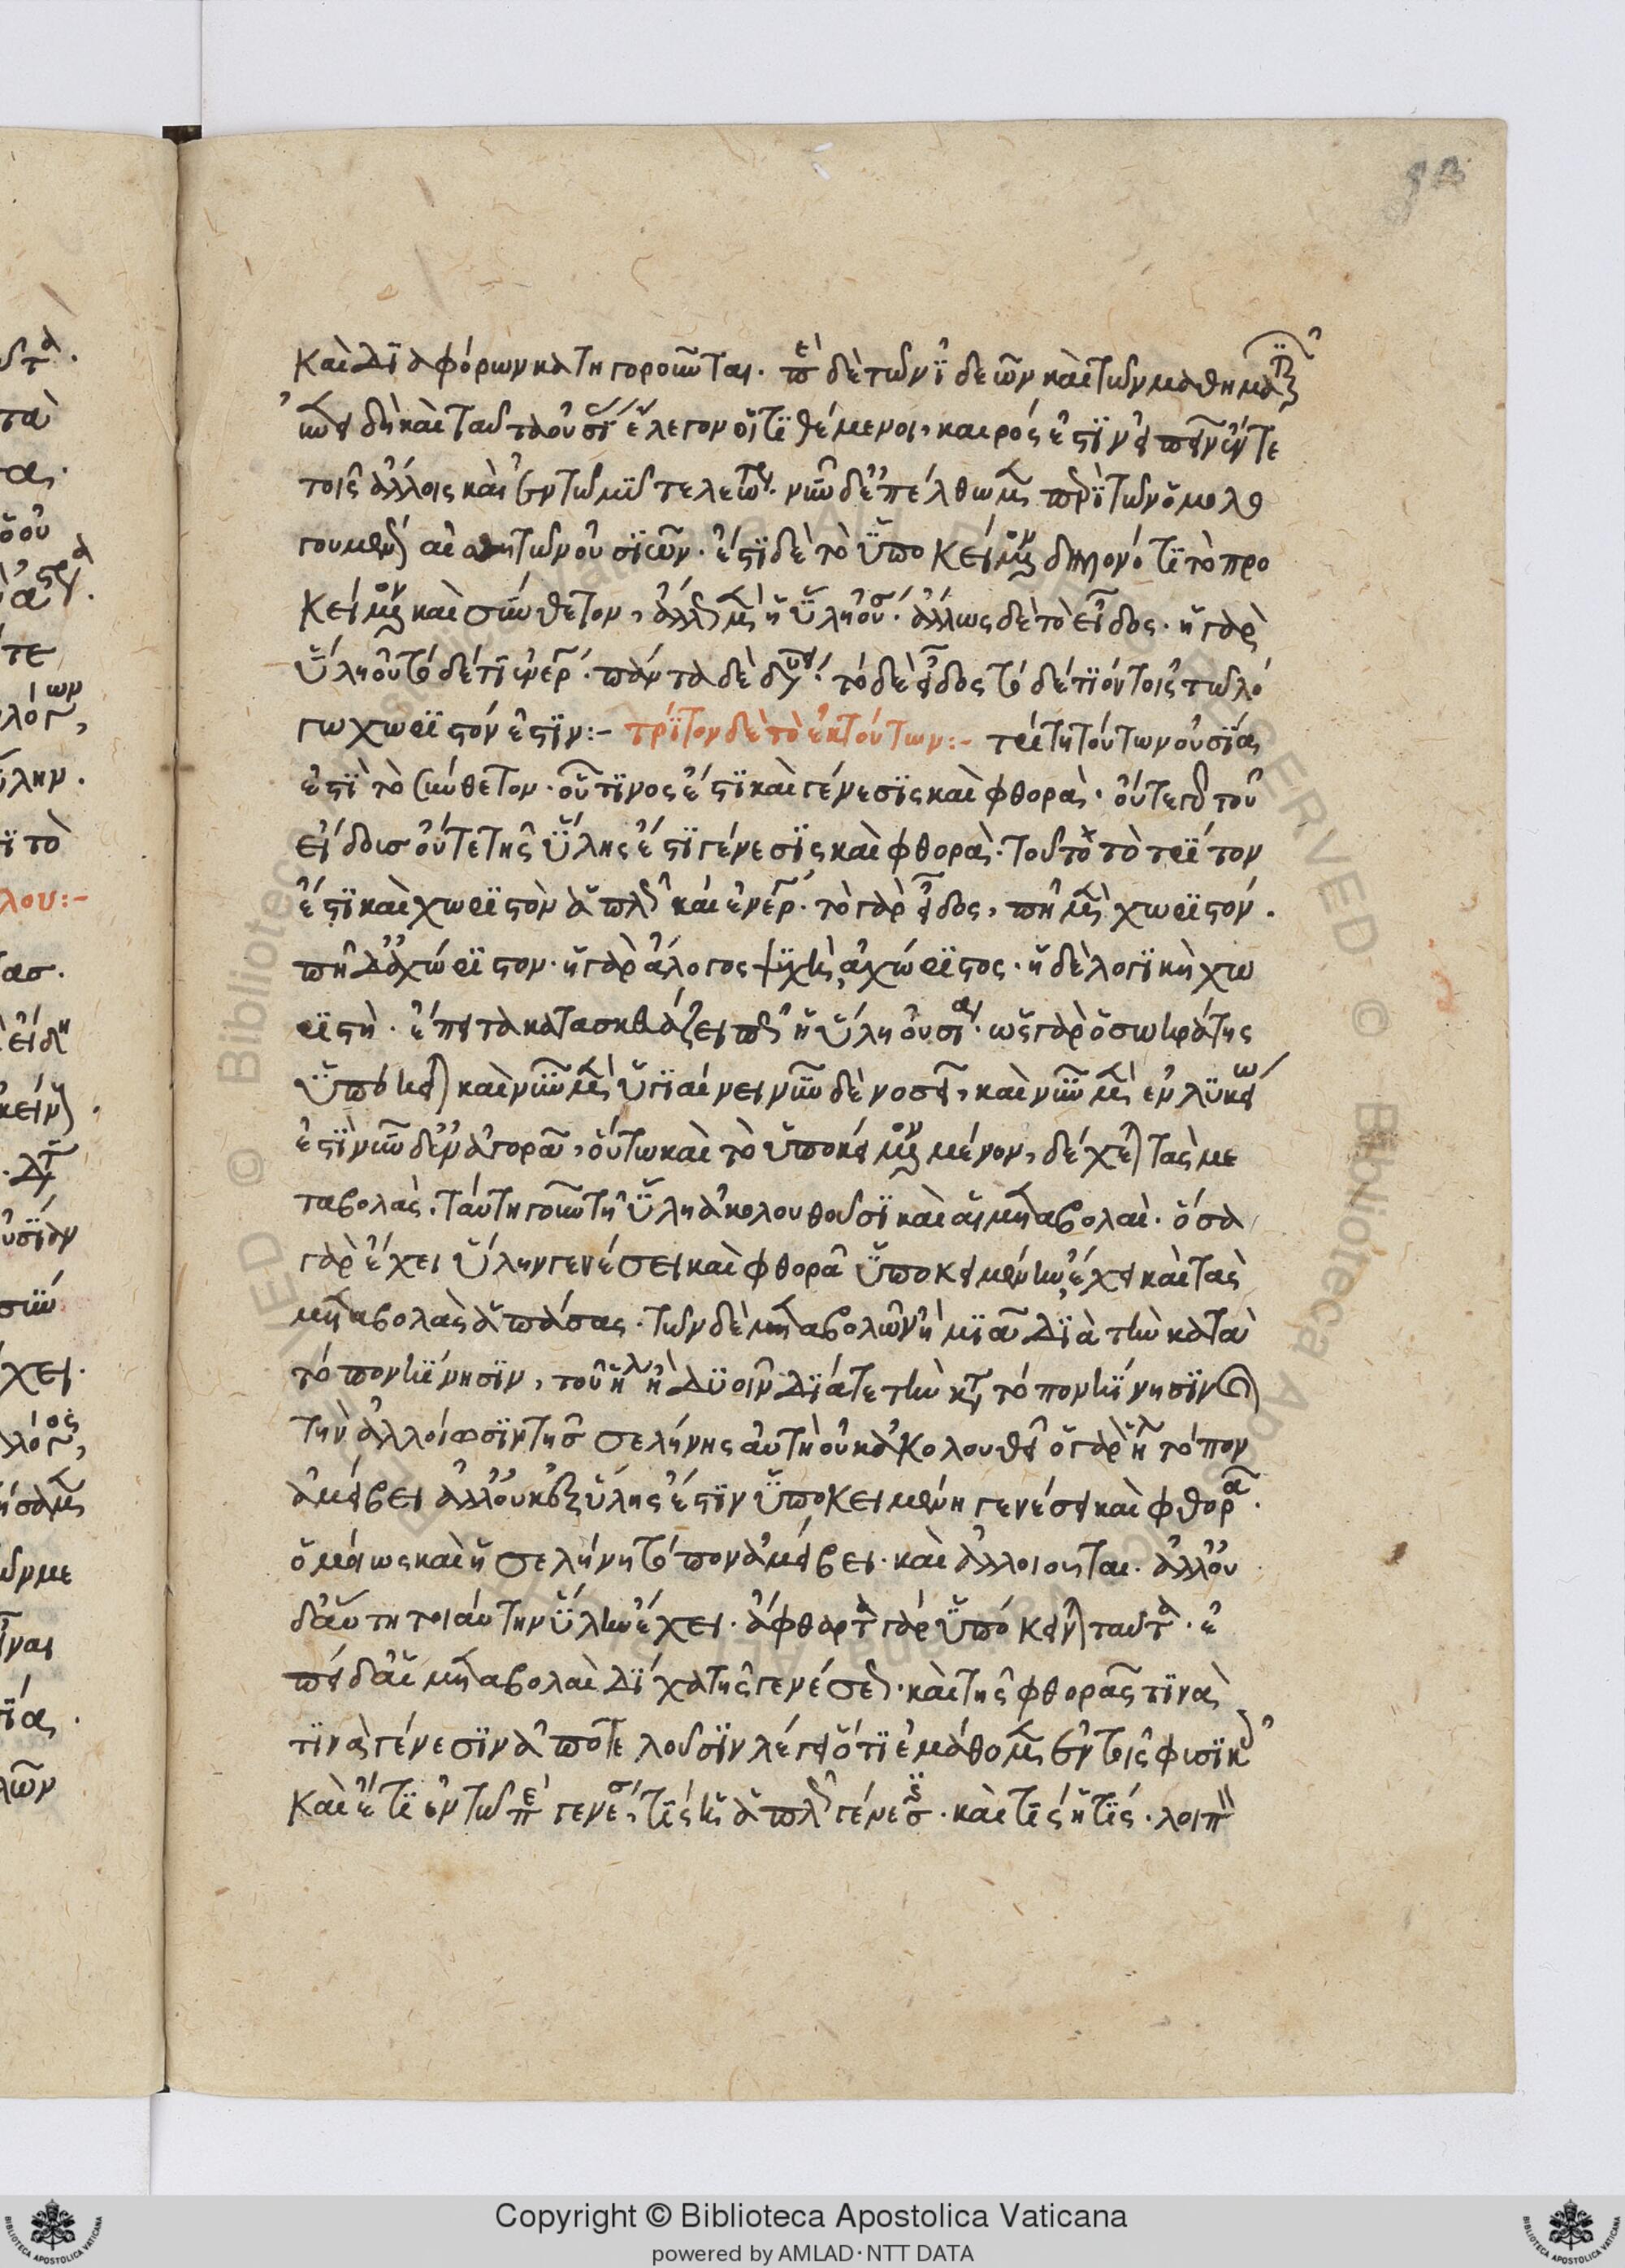 καὶ διαφόρων κατηγοροῦνται. περὶ δὲ τῶν ἰδεῶν καὶ τῶν μαθηματικῶν
δὴ καὶ ταῦτα οὐσί ἔλεγον οἱ τιθέμενοι, καιρός ἐστιν εἰπεῖν ἔν τε
τοῖς ἄλλοις καὶ ἐν τῷ μῦ τελευτ. νῦν δ ἐπέλθωμεν περὶ τῶν ὁμολο
γουμένων αἰσθητῶν οὐσιῶν. ἔστι δὲ τὸ ὑποκείμενον δηλονότι τὸ προ
κείμενον καὶ σύνθετον, ἄλλως μὲν ἡ ὕλη οὐσί. ἄλλως δὲ τὸ εἶδος. ἡ γὰρ
ὕλη οὐ τόδε τι ἐνερ. πάντα δὲ δυν. τὸ δὲ εἶδος τόδε τι ὂν τοῖς τῷ λό
γω χωριστόν ἐστιν:– τρίτον δὲ τὸ ἐκ τούτων:– τρίτη τούτων οὐσίας
ἐστὶ τὸ σύνθετον. οὗ τινος ἔστι καὶ γένεσις καὶ φθορὰ. οὔτε γὰρ τοῦ
εἴδους οὔτε τῆς ὕλης ἔστι γένεσις καὶ φθορὰ. τοῦτο τὸ τρίτον
ἔστι καὶ χωριστὸν ἁπλῶς καὶ ἐνερ. τὸ γὰρ εἶδος, πῆ μὲν χωριστόν.
πῆ δ ἀχώριστον. ἡ γὰρ ἄλογος ψυχὴ ἀχώριστος. ἡ δὲ λογικὴ χω
ριστὴ. ἔπειτα κατασκευάζει πῶς ἡ ὕλη οὐσία. ὡς γὰρ ὁ σωκράτης
ὑπόκειται καὶ νῦν μὲν ὑγιαίνει νῦν δὲ νοσεῖ, καὶ νῦν μὲν ἐν λυκείω
ἐστὶ νῦν δ ἐν ἀγορᾶ, οὕτω καὶ τὸ ὑποκείμενον μένον, δέχεται τὰς με
ταβολὰς. ταύτη γοῦν τῆ ὕλη ἀκολουθοῦσι καὶ αἱ μεταβολαὶ. ὅσα
γὰρ ἔχει ὕλην γενέσει καὶ φθορᾶ ὑποκειμένην, ἔχει καὶ τὰς
μεταβολὰς ἁπάσας. τῶν δὲ μεταβολῶν ἡ μία διὰ τὴν κατὰ
τόπον κίνησιν, τοῦ ἡλ ἢ δυοῖν διά τε τὴν κατὰ τόπον κίνησιν καὶ
τὴν ἀλλοίωσιν τῆς σελήνης αὐτῇ οὐκ ἀκολουθεῖ ὁ γὰρ ἥλ τόπον
ἀμείβει ἀλλ οὐκ ἐξ ὕλης ἐστὶν ὑποκειμένη γενέσει καὶ φθορᾶ.
ὁμοίως καὶ ἡ σελήνη τόπον ἀμείβει. καὶ ἀλλοιοῦται. ἀλλ οὐ
δ αὕτη τοιαύτην ὕλην ἔχει. ἄφθαρτα γάρ ὑπόκεινται ταῦτα. ἐ
πεὶ δ αἱ μεταβολαὶ δίχα τῆς γενέσεως. καὶ τῆς φθορᾶς τινὰ
τινὰ γένεσιν ἀποτελοῦσιν λέγει ὅτι ἐμάθομεν ἐν τοῖς φυσικ
καὶ ἔτι ἐν τῷ περὶ γενεσ, τίς ἡ ἁπλῶς γένεσις. καὶ τίς ἡ τίς. λοιπ